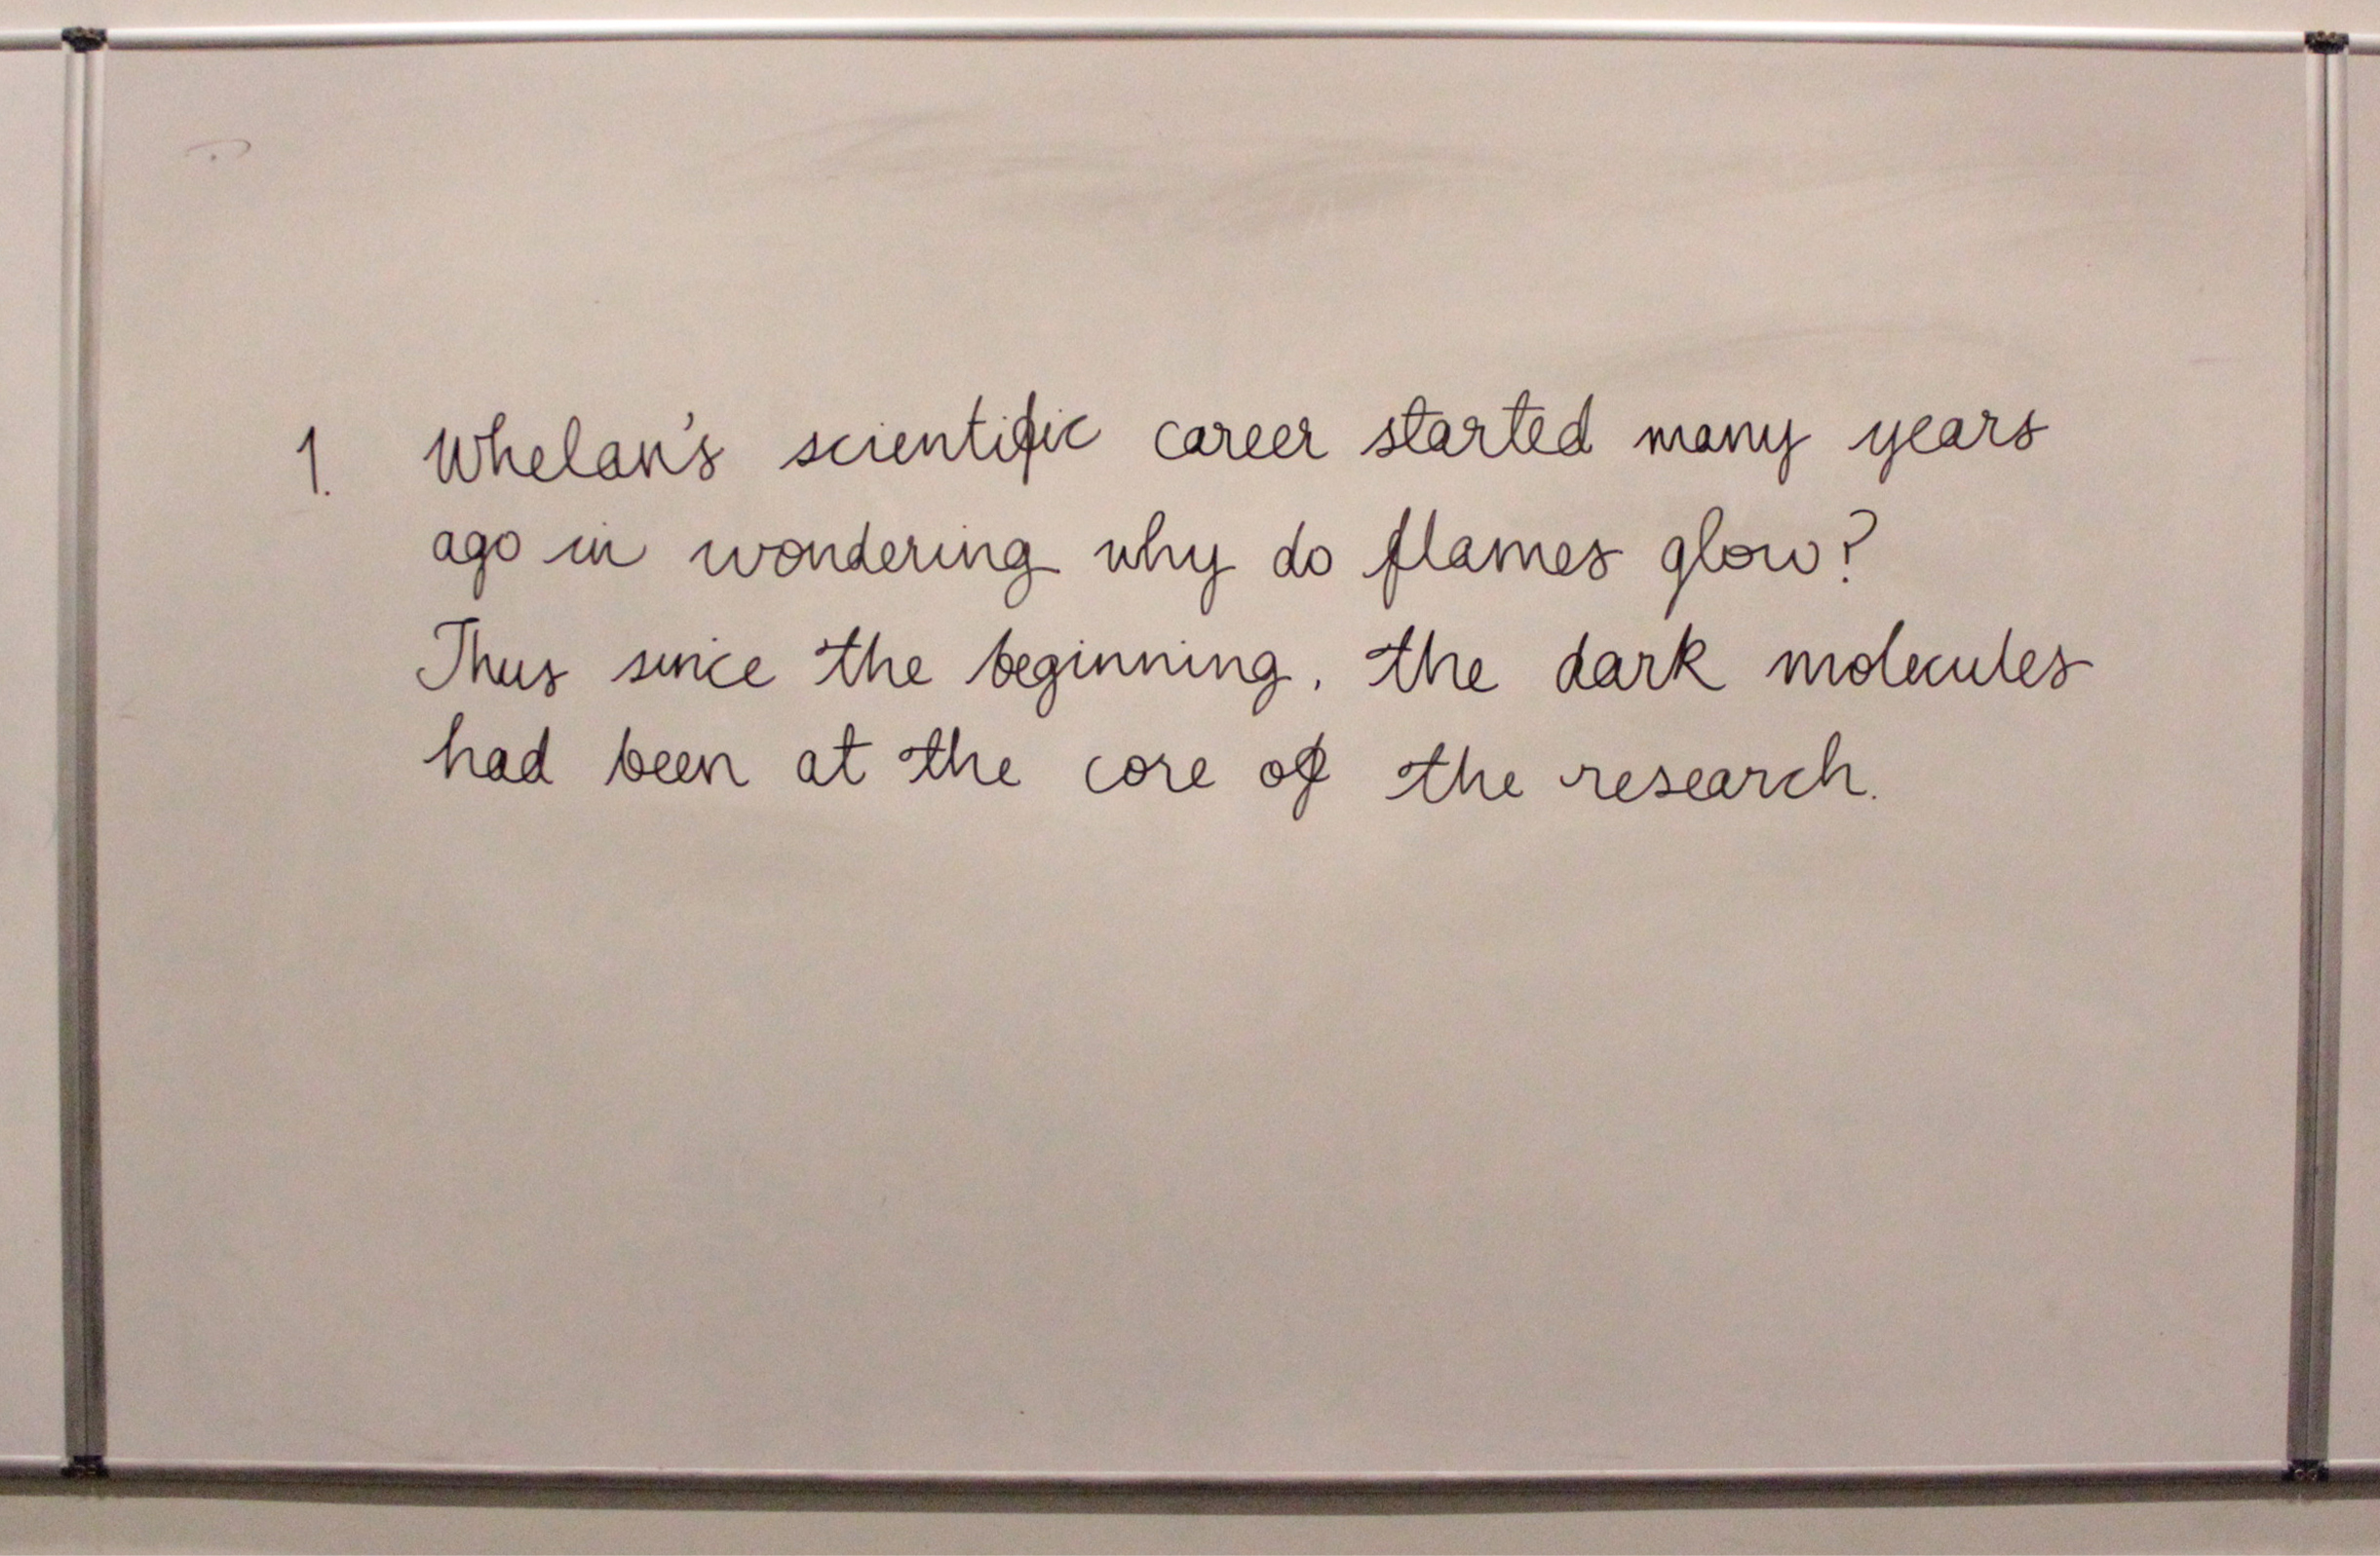 1. Whelan's scientific career started many years
ago in wondering why do flames glow?
Thus since the beginning, the dark molecules
had been at the core of the research.